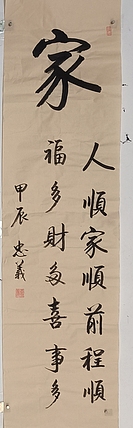 家
人順家順前程順
福多財多喜事多
甲辰 忠義